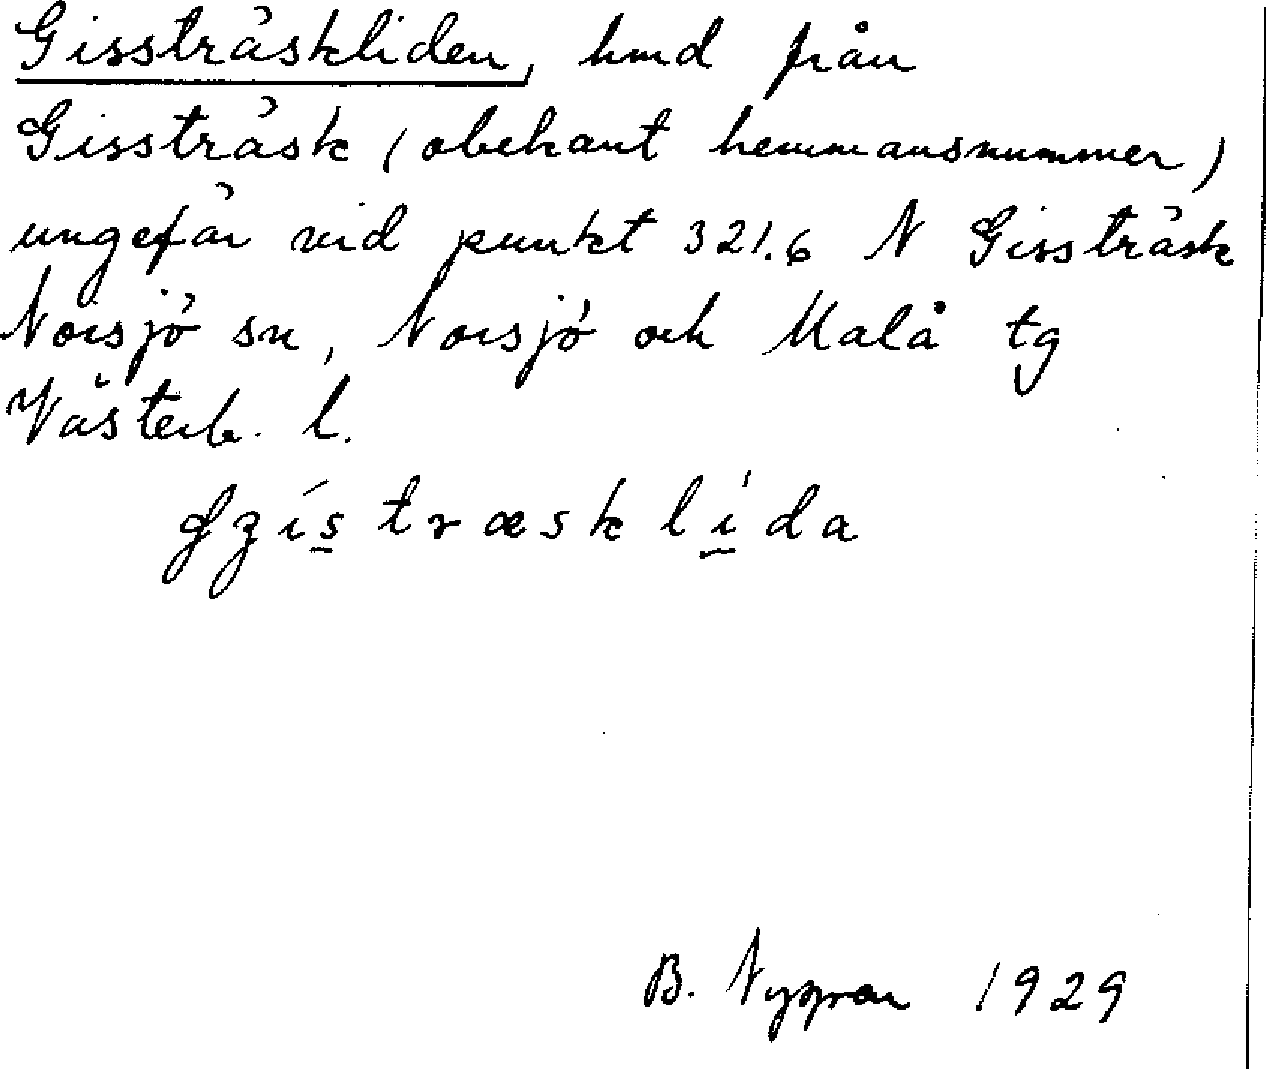 Gissträskliden, hmd från
Gissträsk (obekant hemmansnummer)
ungefär vid punkt 321.6 N Gissträsk
Norsjö sn, Norsjö och Malå tg
Västerb. l.
træsklida
B. 1929